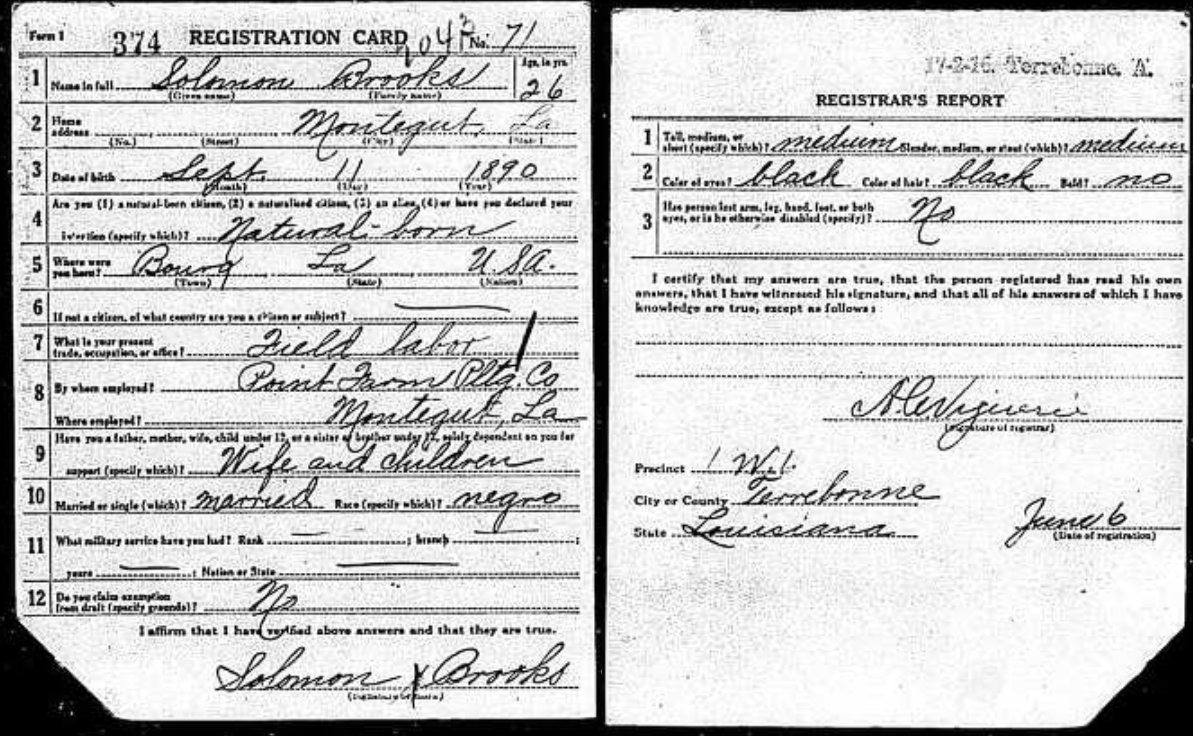 Form 1 374 REGISTRATION CARD No. 71
1 Name in full Solomon Brooks Age, in yrs. 26
(Given name) (Family name)
2 Home address Montegut, La
(No.) (Street) (City) (State)
3 Date of birth Sept. 11 1890
(Month) (Day) (Year)
4 Are you (1) a natural-born citizen, (2) a naturalized citizen, (3) an alien, (4) or have you declared your
intention (specify which)? Natural-born
5 Where were you born? Bourg La USA.
(Town) (State) (Nation)
6 If not a citizen, of what country are you a citizen or subject?
7 What is your present trade, occupation, or office? Field labor
8 By whom employed? Point Farm Pltg. Co
Where employed? Montegut, La
9 Have you a father, mother, wife, child under 12, or a sister or brother under 12, solely dependent on you for
support (specify which)? Wife and children
10 Married or single (which)? married Race (specify which)? negro
11 What military service have you had? Rank ; branch ;
years ; Nation or State
12 Do you claim exemption from draft (specify grounds)? No
I affirm that I have verified above answers and that they are true.
Solomon X Brooks
17-2-16. Terrebonne. A.
REGISTRAR'S REPORT
1 Tall, medium, or short (specify which)? medium Slender, medium, or stout (which)? medium
2 Color of eyes? black Color of hair? black Bald? no
3 Has person lost arm, leg, hand, foot, or both eyes, or is he otherwise disabled (specify)? No
I certify that my answers are true, that the person registered has read his own
answers, that I have witnessed his signature, and that all of his answers of which I have
knowledge are true, except as follows:
(Signature of registrar)
Precinct 1 Wd.
City or County Terrebonne
State Louisiana
June 6
(Date of registration)